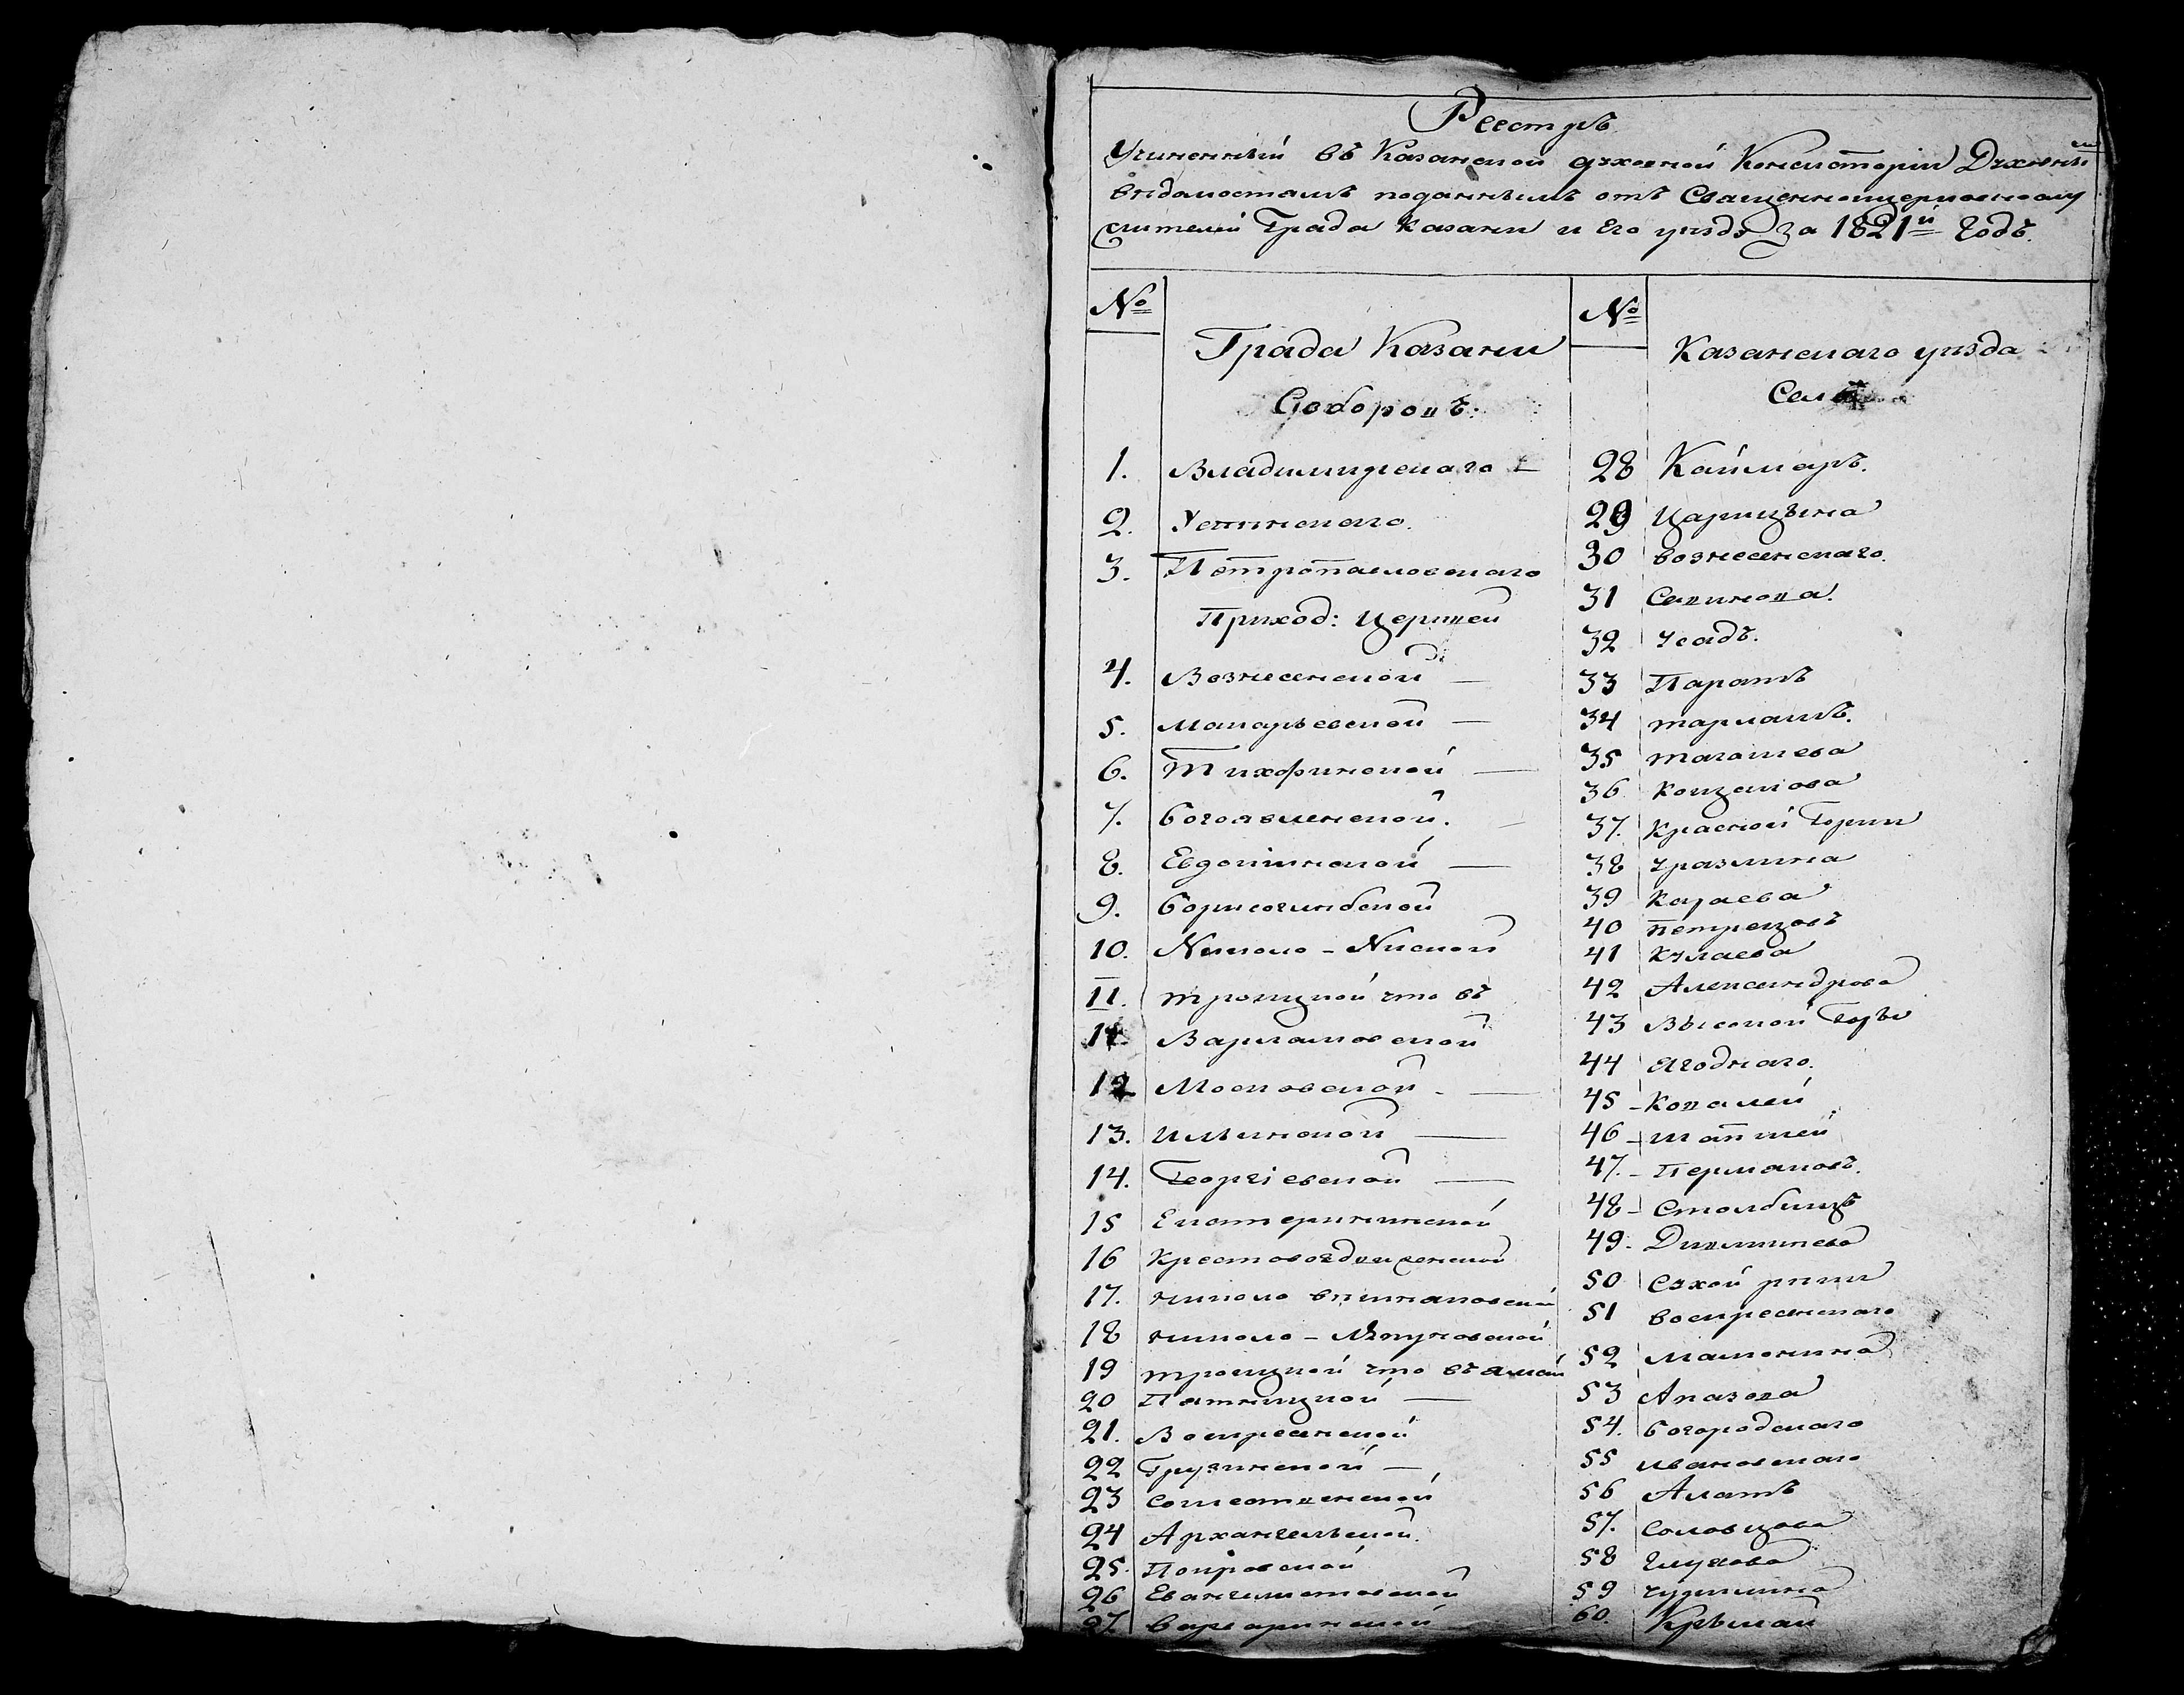 Реестръ
Учиненный въ Казанской духовной Консисторіи Духовны^мъ
вѣдомостямъ поданнымъ отъ Священноцерковнослу
жителей Града Казани и Его уѣзда за 1821й Годъ.
№
Града Казани
Соборовъ:
1. Владимирскаго —
2. Успенскаго.
3. Петропавловскаго
Приход: Церквей
4. Вознесенской —
5. Макарьевской —
6. Тихфинской —
7. Богоявленской. —
8. Евдокіинской —
9. Борисоглибской
10. Николо-Ниской
11. троицкой что въ
12. Варламовской
12 Московской —
13. Ильинской —
14. Георгіевской —
15 Екатерининской
16 Крестовоздвиженской
17. николо вишняковской
18 николо-Ляпуновской
19 троицкой что въ ямѣ
20 Пятницкой —
21. Воскресенской
22 Грузинской —
23 сошественской
24 Архангельской.
25. Покровской
26 Евангелистовской
27. варваринской
№
Казанскаго уѣзда
Селъ
28 Каймаръ.
29 Царицына
30 вознесенскаго.
31 Сабинова.
32 Усадъ.
33 Паратъ
34 тарлашъ.
35 тагашева
36 Кощакова
37. Красной Горки
38 Уразлина
39 Караева
40 петрецовъ
41 Кулаева
42 Александрова
43 Высокой Горы
44 ягоднаго.
45 - Ковалей
46 - шапшей
47. - Пермяковъ.
48 - Столбищъ
49. Девликеева
50 Сухой рики
51 воскресенскаго
52 Мамонина
53 Апазова
54. Богородскаго
55 ивановскаго
56 Алатъ
57. Соловцова
58 глухова
59 чурилина
60. Крылай